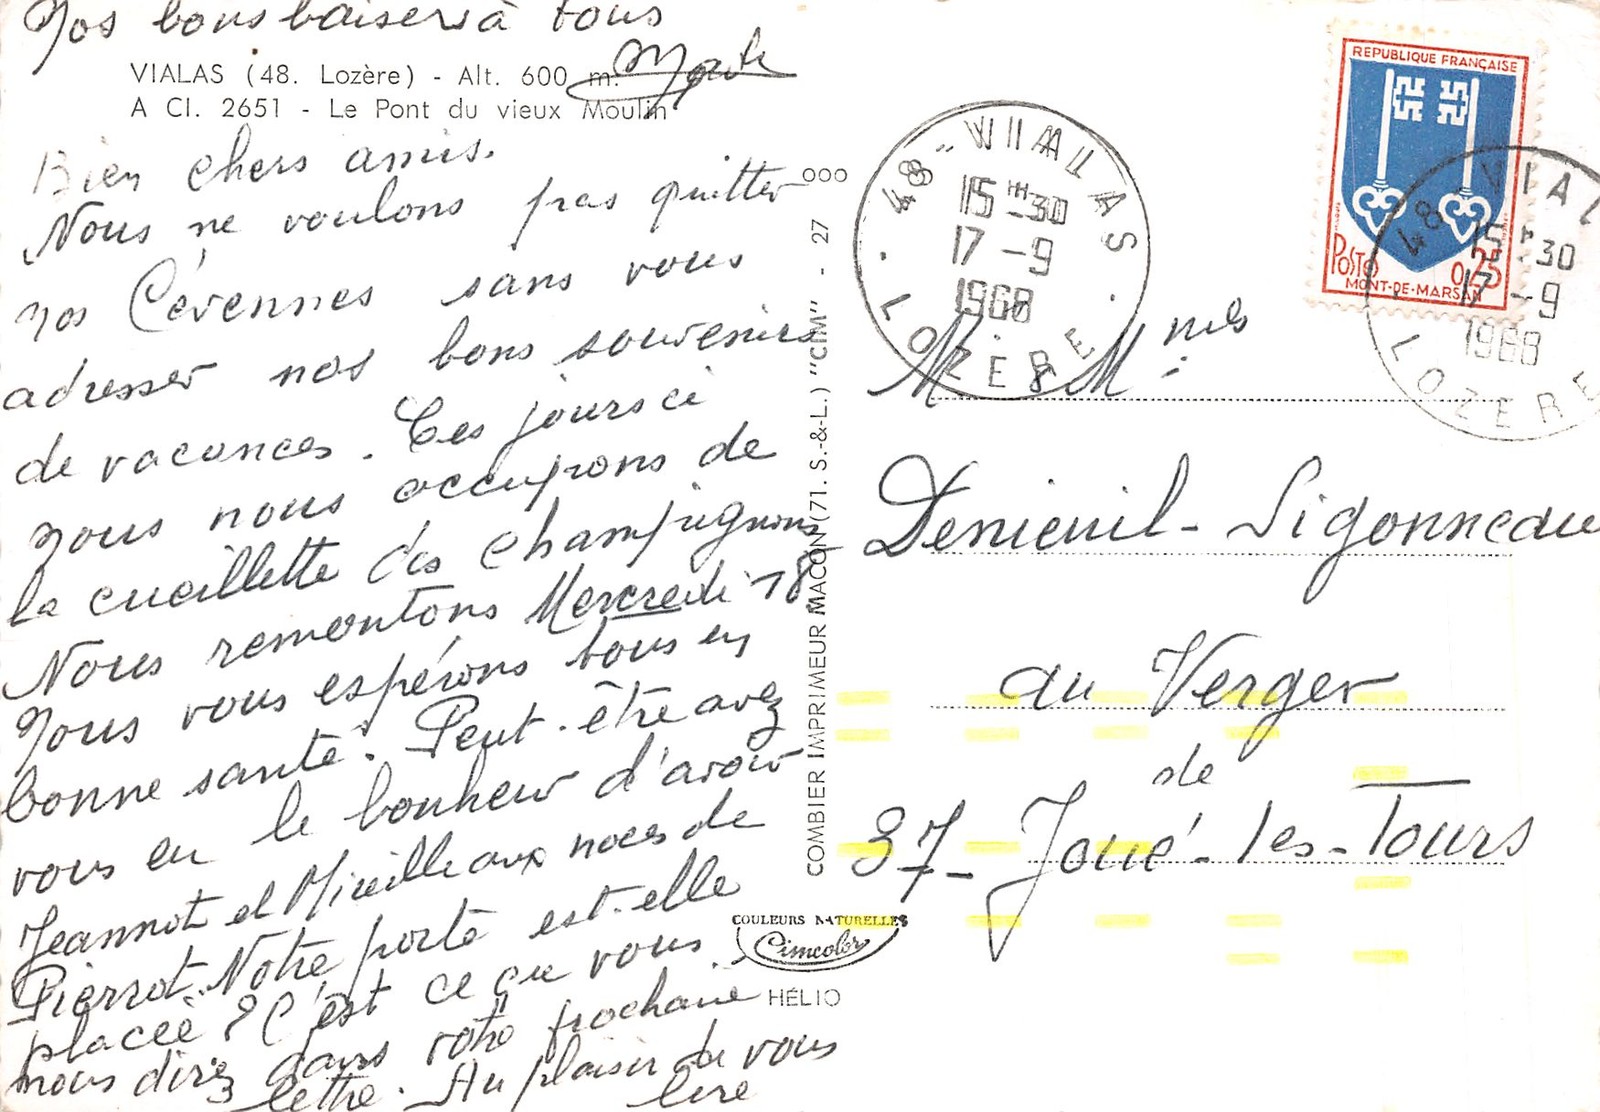 Nos bons baisers à tous
VIALAS (48. Lozère) - Alt. 600 m.
A CI. 2651 - Le Pont du vieux Moulin
Bien chers amis.
Nous ne voulons pas quitter
nos Cévennes sans vous
adresser nos bons souvenirs
de vacances. Ces jours ci
nous nous occupons de
la cueillette des champignons
Nous remontons Mercredi 18.
Nous vous espérons tous en
bonne santé. Peut-être avez
vous eu le bonheur d'avoir
Jeannot et Mireille aux noces de
Pierrot. Notre porte est-elle
placée ? C'est ce que vous
nous direz dans votre prochaine
lettre. Au plaisir de vous
lire
COMBIER IMPRIMEUR MACON (71. S.-&-L.) "CIM" - 27
COULEURS NATURELLES
Cimcolor
HÉLIO
REPUBLIQUE FRANÇAISE
POSTES 0,25
MONT-DE-MARSAN
48 - VIALAS
15 H 30
17 - 9
1968
LOZERE
48 VIAL
15 H 30
17 - 9
1968
LOZERE
M. & M. mes
Denieuil - Sigonneau
au Verger
de
37 - Joué-les-Tours